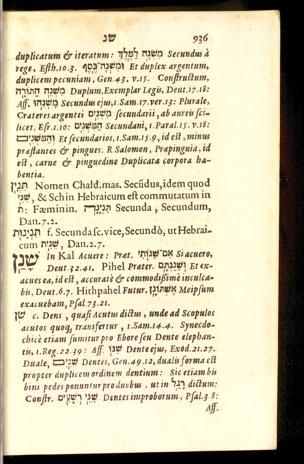 שנ 936
duplicatum & iteratum: מִשְׁנֶה לַמֶּלֶךְ Secundus à
rege, Esth.10.3. וּמִשְׁנֶה־כֶּסֶף Et duplex argentum,
duplicem pecuniam, Gen.43.v.15. Constructum,
מִשְׁנֵה הַתּוֹרָה Duplum, Exemplar Legis, Deut.17.18:
Aff. מִשְׁנֵהוּ Secundus ejus, 1.Sam.17.ver.13: Plurale,
Crateres argentei מִשְׁנִים secundarii, ab aureis sci-
licet, Esr.1.10: הַמִּשְׁנִים Secundani, 1.Paral.15.v.18:
וְהַמִּשְׁנִים Et secundarios, 1.Sam.15.9, id est, minus
præstantes & pingues. R. Salomon, Præpinguia, id
est, carne & pinguedine Duplicata corpora ha-
bentia.
תִּנְיָן Nomen Chald. mas. Secũdus, idem quod
שֵׁנִי, & Schin Hebraicum est commutatum in
ת: Fæminin. תִּנְיָנָה Secunda, Secundum,
Dan.7.2.
תִּנְיָנוּת f. Secunda sc. vice, Secundò, ut Hebrai-
cum שֵׁנִית, Dan.2.7.
שָׁנַן In Kal Acuere: Præt. אִם־שַׁנּוֹתִי Si acuero,
Deut.32.41. Pihel Præter. וְשִׁנַּנְתָּם Et ex-
acues ea, id est, accuratè & commodissimè inculca-
bis, Deut.6.7. Hithpahel Futur. אֶשְׁתּוֹנָן Meipsum
exacuebam, Psal.73.21.
שֵׁן c. Dens, quasi Acutus dictus, unde ad Scopulos
acutos quoq; transfertur, 1.Sam.14.4. Synecdo-
chicè etiam sumitur pro Ebore seu Dente elephan-
tis, 1.Reg.22.39: Aff. שִׁנּוֹ Dente ejus, Exod.21.27.
Duale, שִׁנַּיִם Dentes, Gen.49.12, dualis forma est
propter duplicem ordinem dentium: Sic etiam bis
bini pedes ponuntur pro duobus, ut in רֶגֶל dictum:
Constr. שִׁנֵּי רְשָׁעִים Dentes improborum, Psal.3.8:
Aff.